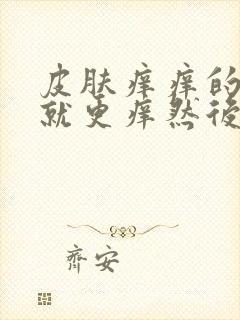 皮肤痒痒的
就更痒然后
齐安